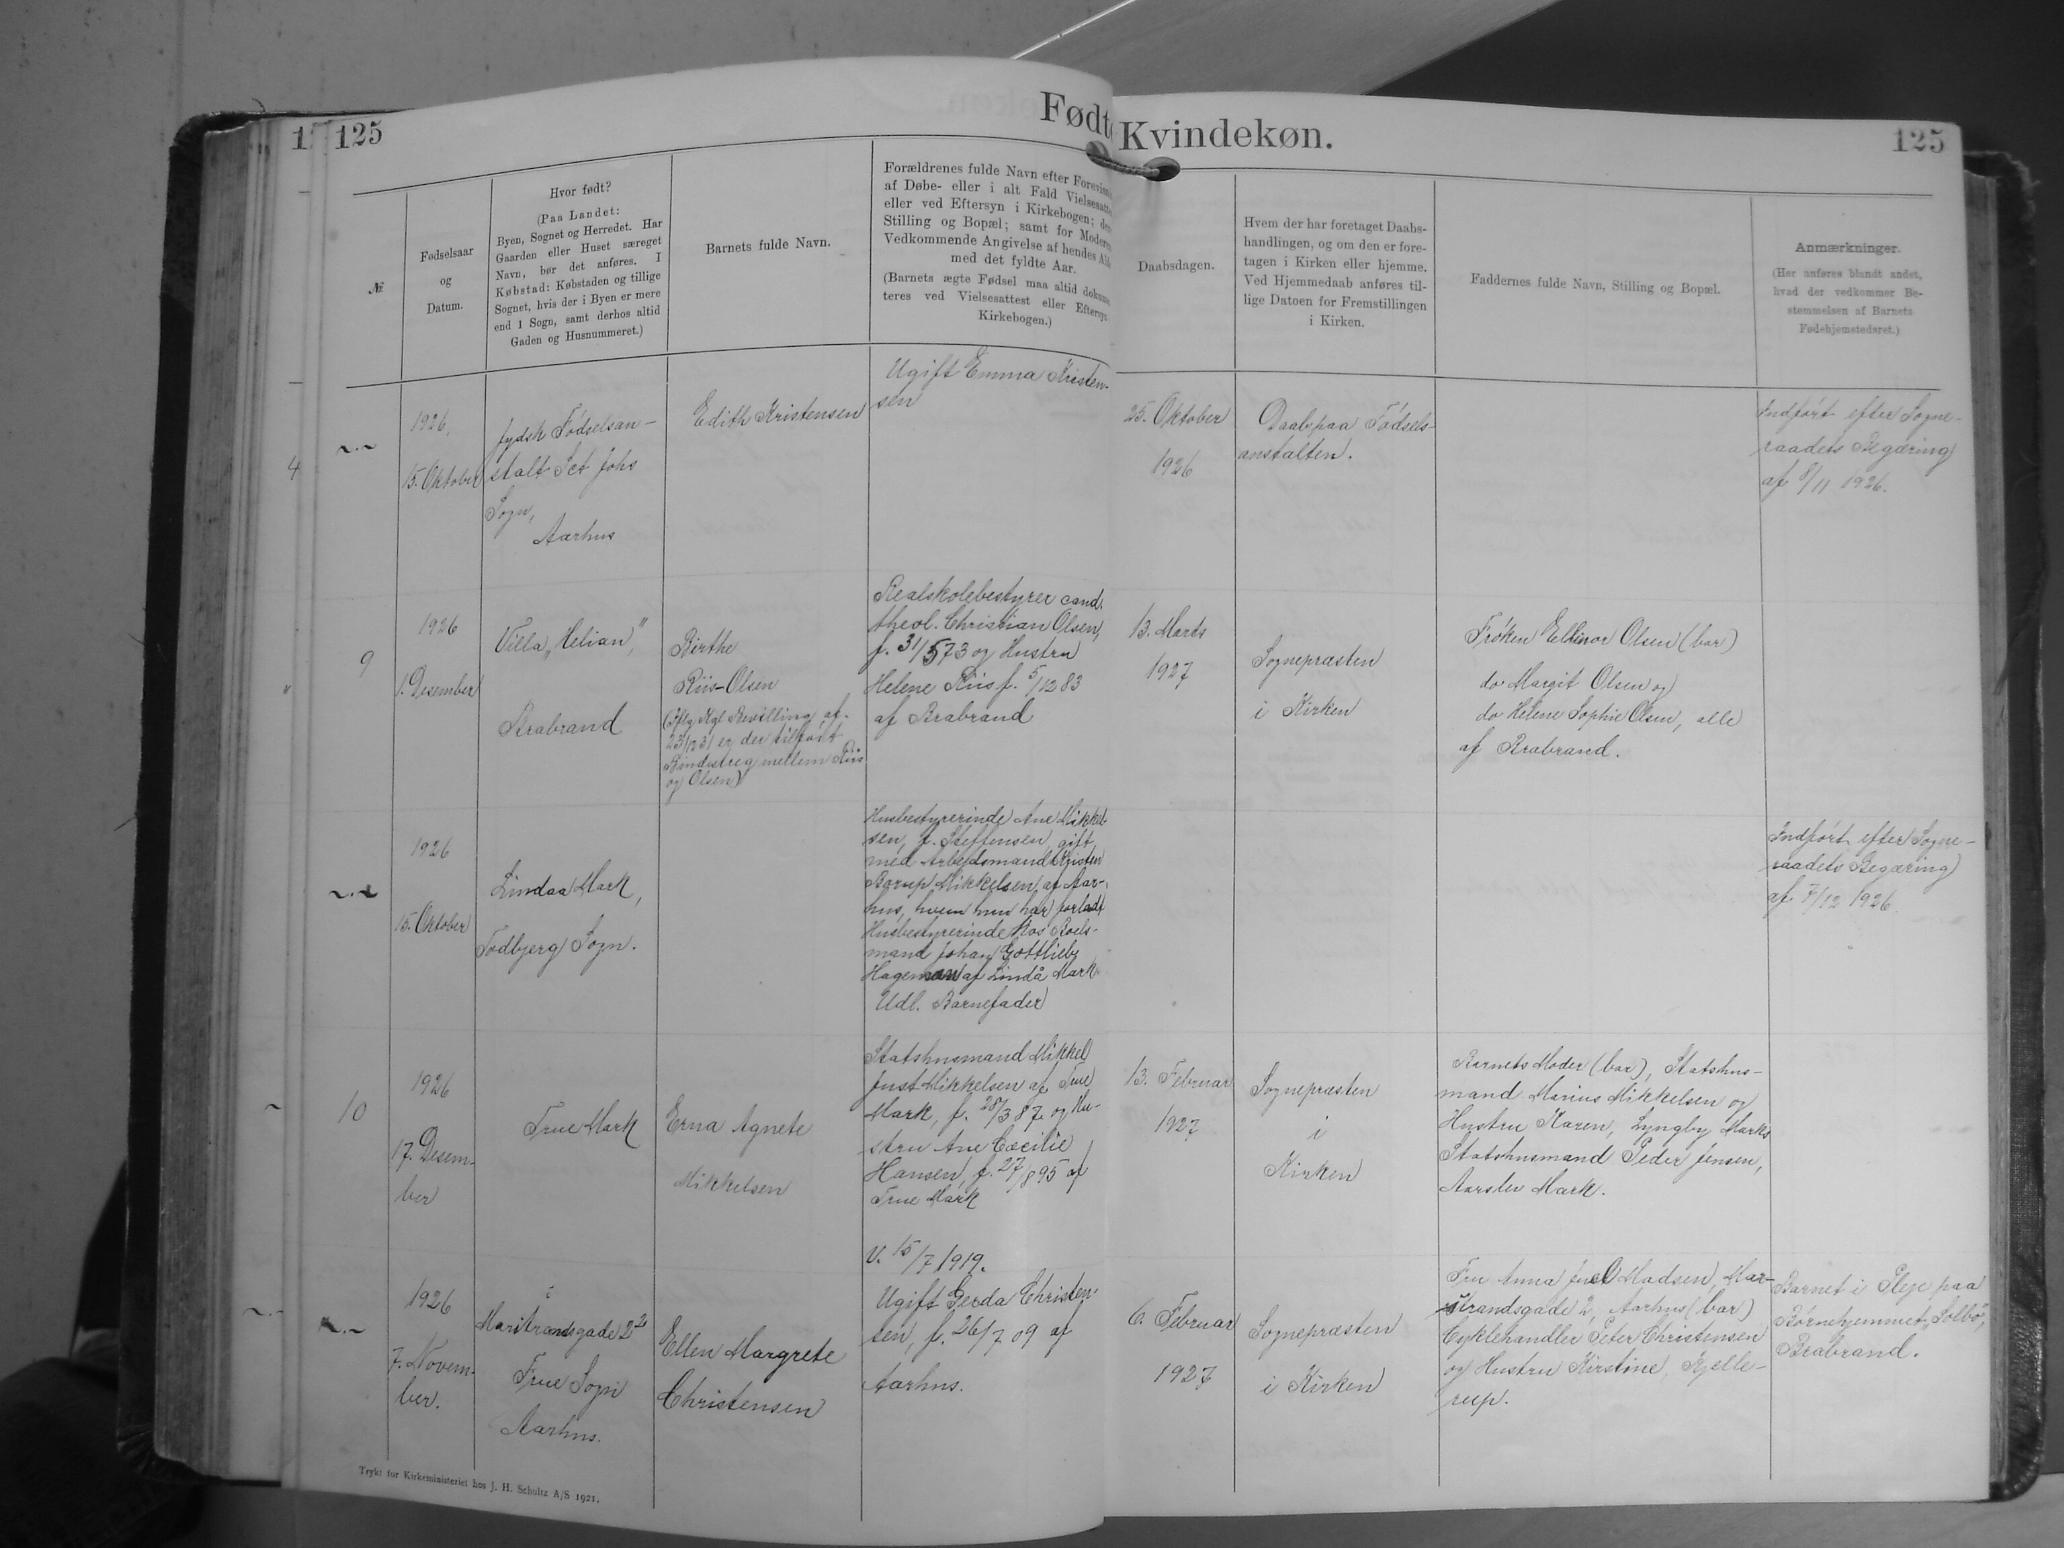 125
Født
№
Fødselsaar
og
Datum.
Hvor født?
(Paa Landet:
Byen, Sognet og Herredet. Har
Gaarden eller Huset særeget
Navn, bør det anføres. I
Købstad: Købstaden og tillige
Sognet, hvis der i Byen er mere
end 1 Sogn, samt derhos altid
Gaden og Husnummeret.)
Barnets fulde Navn.
Forældrenes fulde Navn efter
af Døbe- eller i alt Fald
eller ved Eftersyn i Kirkebogen;
Stilling og Bopæl; samt for
Vedkommende Angivelse af hendes
med det fyldte Aar.
(Barnets ægte Fødsel maa altid
teres ved Vielsesattest eller
Kirkebogen.)
4
~.~
1926,
15. Oktober
Jydsk Fødselsan-
stalt Sct Johs
Sogn,
Aarhus
Edith Kristensen
Ugift Emma Kristen-
sen
9
1926
1. Desember
Villa „Helian",
Brabrand
Birthe
Riis-Olsen
(Iflg. Kgl. Bevilling af
er der tilført
Bindestreg mellem Riis
og Olsen)
Realskolebestyrer cand.
theol. Christian Olsen,
f. 31/5 73 og Hustru
Helene Riis f. 5/12 83
af Brabrand
~.~
1926
15. Oktober
Lindaa Mark,
Todbjerg Sogn.
Husbestyrerinde Ane Mikkel-
sen, f. Steffensen, gift
med Arbejdsmand Kristen
Borup Mikkelsen af Aar-
hus, hvem hun har forladt
Husbestyrerinde hos Boels-
mand Johan Gottlieb
Hageman af Lindå Mark
Udl. Barnefader
10
1926
17. Desem-
ber
True Mark
Erna Agnete
Mikkelsen
Statshusmand Mikkel
Just Mikkelsen af True
Mark, f. 28/3 87 og Hu-
stru Ane Cæcilie
Hansen, f. 27/8 95 af
True Mark
V. 15/7 1919.
~.~
1926
7. Novem-
ber.
Marstrandsgade 2
Frue Sogn
Aarhus.
Ellen Margrete
Christensen
Ugift Gerda Christen-
sen, f. 26/7 09 af
Aarhus.
Trykt for Kirkeministeriet hos J. H. Schultz A/S 1921.
Kvindekøn.
125
Daabsdagen.
Hvem der har foretaget Daabs-
handlingen, og om den er fore-
tagen i Kirken eller hjemme.
Ved Hjemmedaab anføres til-
lige Datoen for Fremstillingen
i Kirken.
Faddernes fulde Navn, Stilling og Bopæl.
Anmærkninger.
(Her anføres blandt andet,
hvad der vedkommer Be-
stemmelsen af Barnets
Fødehjemstedsret.)
25. Oktober
1926
Daab paa Fødsels-
anstalten.
Indført efter Sogne-
raadets Begæring
af 8/11 1926.
13. Marts
1927
Sognepræsten
i Kirken
Frøken Ellinor Olsen (bar)
do Margit Olsen og
do Helene Sophie Olsen, alle
af Brabrand.
Indført efter Sogne-
raadets Begæring
af 7/12 1926.
13. Februar
1927
Sognepræsten
i
Kirken
Barnets Moder (bar), Statshus-
mand Marius Mikkelsen og
Hustru Karen, Lyngby Mark
Statshusmand Peder Jensen,
Aarslev Mark.
6. Februar
1927
Sognepræsten
i Kirken
Fru Anna Juel Madsen, Mar-
strandsgade 2, Aarhus (bar)
Cyklehandler Peter Christensen
og Hustru Kirstine, Kjelle-
rup.
Barnet i Pleje paa
Børnehjemmet „Solbo",
Brabrand.